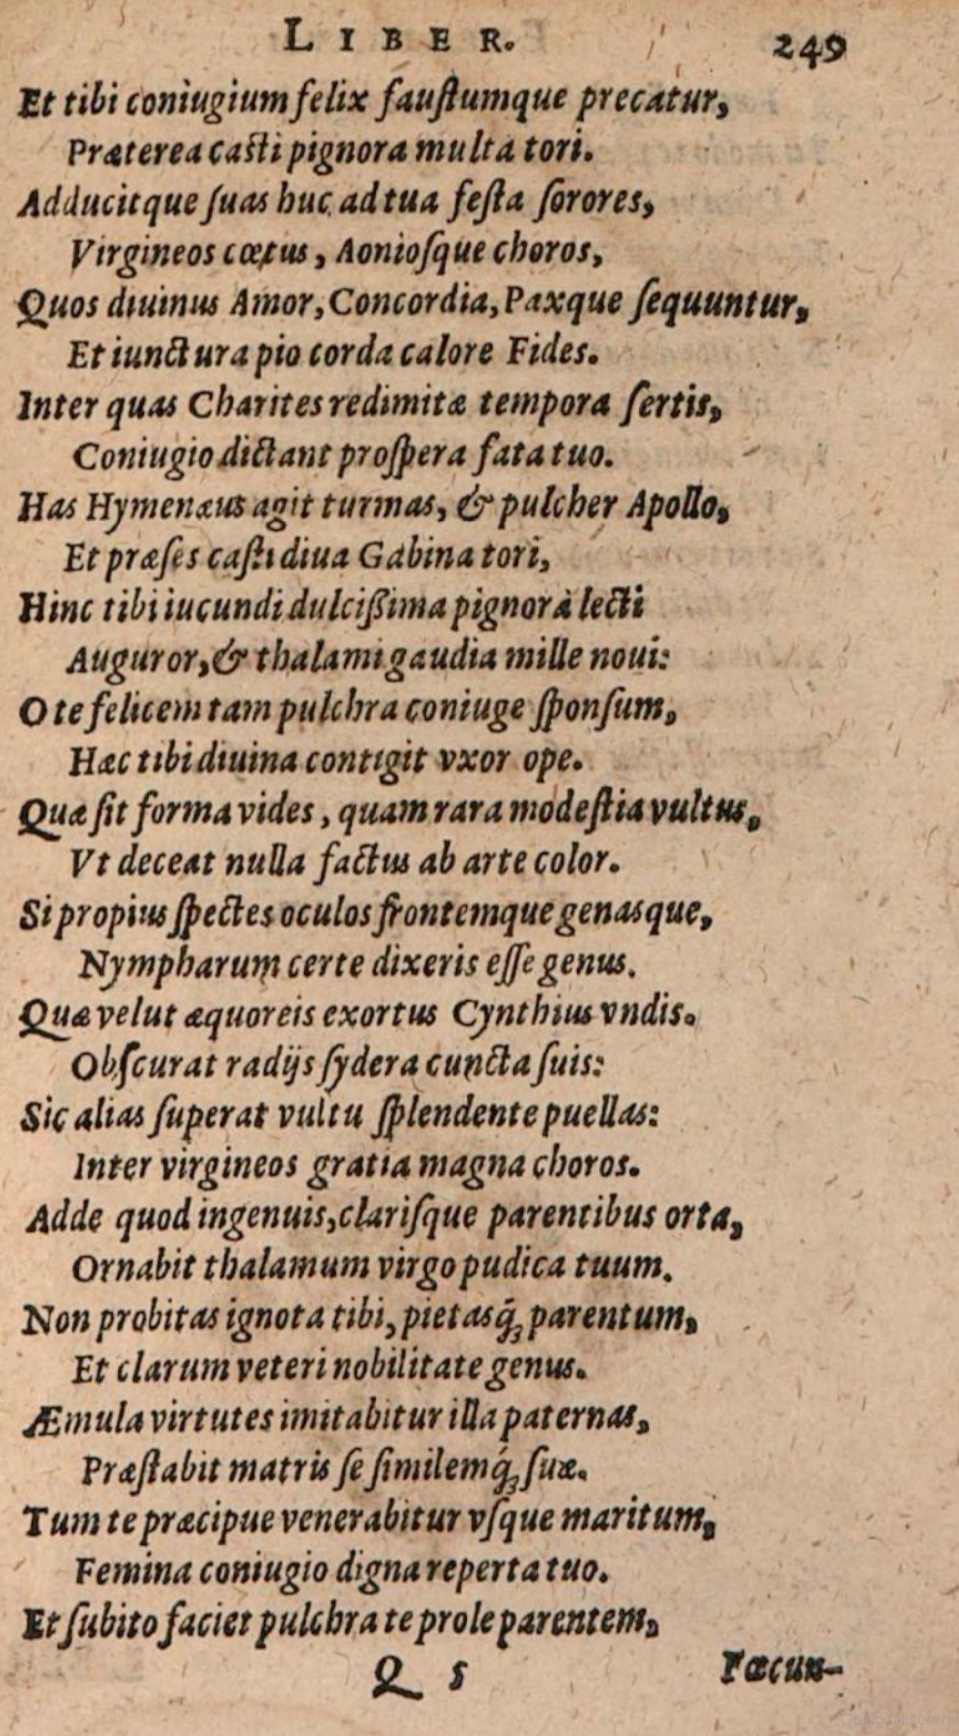 LIBER. 249
Et tibi coniugium felix faustumque precatur,
Præterea casti pignora multa tori.
Adducitque suas huc ad tua festa sorores,
Virgineos cœtus, Aoniosque choros,
Quos diuinus Amor, Concordia, Paxque sequuntur,
Et iunctura pio corda calore Fides.
Inter quas Charites redimitæ tempora sertis,
Coniugio dictant prospera fata tuo.
Has Hymenæus agit turmas, & pulcher Apollo,
Et præses casti diua Gabina tori,
Hinc tibi iucundi dulcißima pignora lecti
Auguror, & thalami gaudia mille noui:
O te felicem tam pulchra coniuge sponsum,
Hæc tibi diuina contigit vxor ope.
Quæ sit forma vides, quam rara modestia vultus,
Vt deceat nulla factus ab arte color.
Si propius spectes oculos frontemque genasque,
Nympharum certe dixeris esse genus.
Quæ velut æquoreis exortus Cynthius vndis.
Obscurat radijs sydera cuncta suis:
Sic alias superat vultu splendente puellas:
Inter virgineos gratia magna choros.
Adde quod ingenuis, clarisque parentibus orta,
Ornabit thalamum virgo pudica tuum.
Non probitas ignota tibi, pietasq́ꝫ parentum,
Et clarum veteri nobilitate genus.
Æmula virtutes imitabitur illa paternas,
Præstabit matris se similemq́ꝫ suæ.
Tum te præcipue venerabitur vsque maritum,
Femina coniugio digna reperta tuo.
Et subito faciet pulchra te prole parentem,
Q 5 Fœcun-